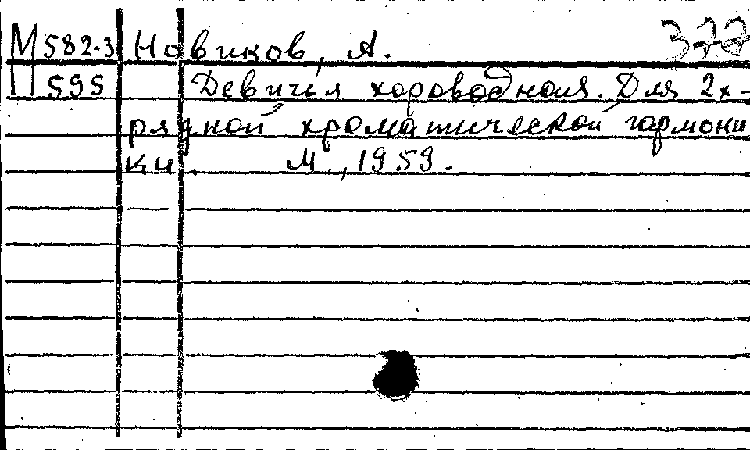 М 582-3 Новиков, А. 377
П 595 Девичья хороводная. Для 2х-
рядной хроматической гармони
ки. М., 1959.